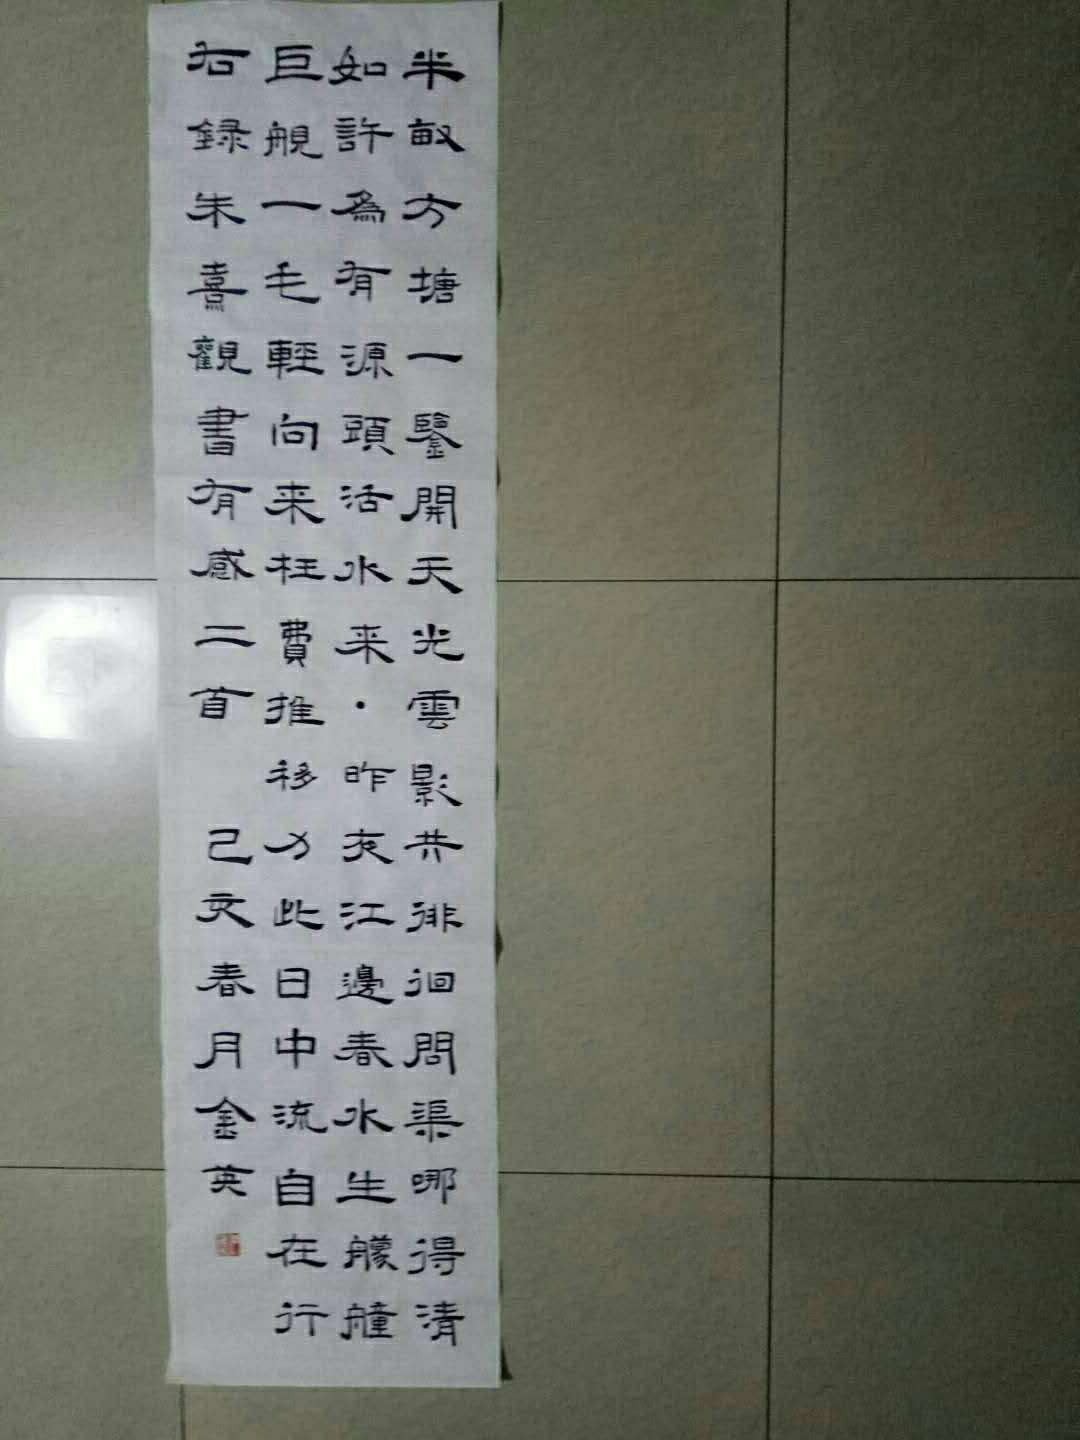 半畝方塘一鑒開天光雲影共徘徊問渠哪得清
如許為有源頭活水来·昨夜江邊春水生艨艟
巨舰一毛輕向来枉費推移力此日中流自在行
右録朱熹觀書有感二首 己亥春月金英